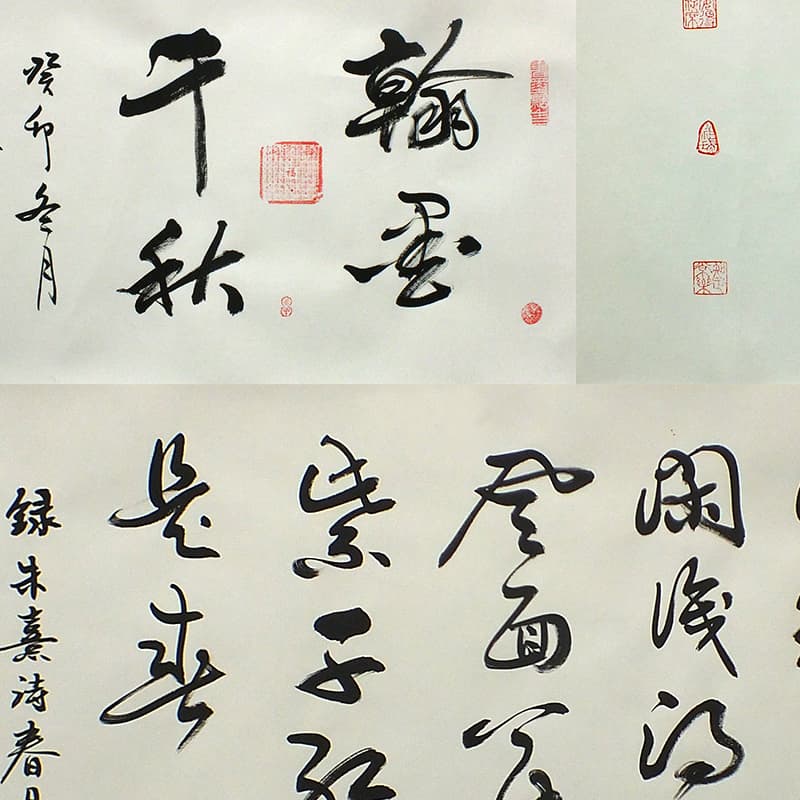 翰墨
千秋
癸卯冬月
閑識得
風面萬
紫千红
是春
録朱熹诗春日